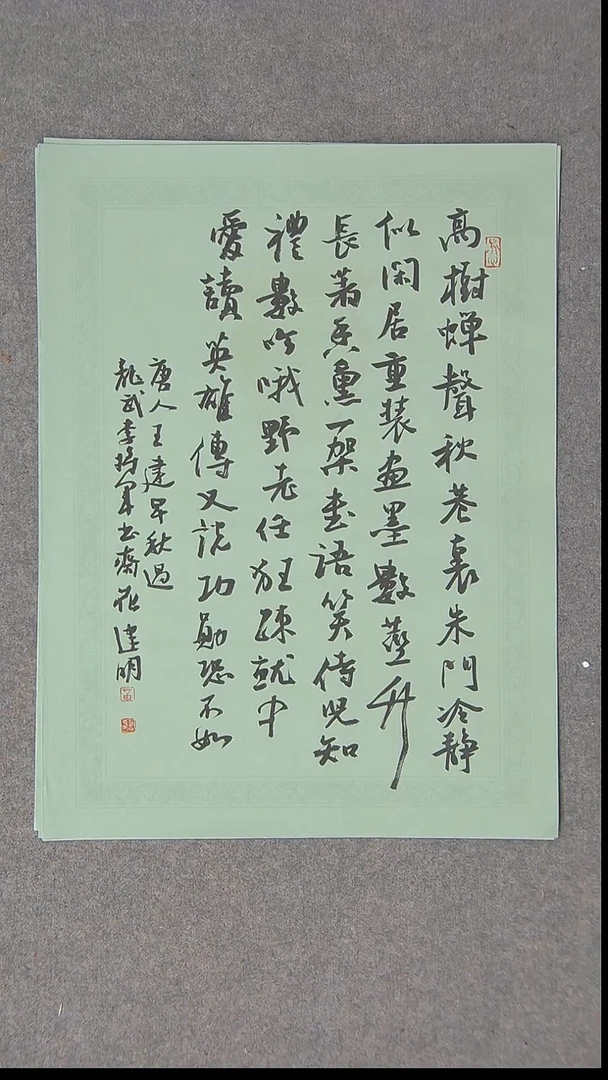 高樹蝉聲秋巷裏朱門冷静
似閑居重装画墨數莖竹
長著香薰一架書語笑侍児知
禮數吟哦野老任狂疎就中
愛讀英雄傳又説功勛恐不如
唐人王建早秋過
龍武李將軍书齋 建明